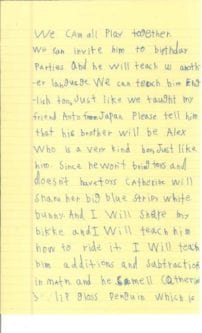 We CAn all Play together.
We can invite him to birthday
Parties And he will teach us anoth-
er language We can teach him Eng-
lish too, Just like we taught my
friend Aoto from Japan Please tell him
that his brother will be Alex
Who is a very kind boy, Just like
him. Since he won't bring toys and
doesn't have toys Catherine will
share her big blue stripy white
bunny And I Will Share my
bike and I Will teach him
how to ride it I Will teach
him additions and subtraction
in math and he smell Catherine
'S lip gloss Penguin which is